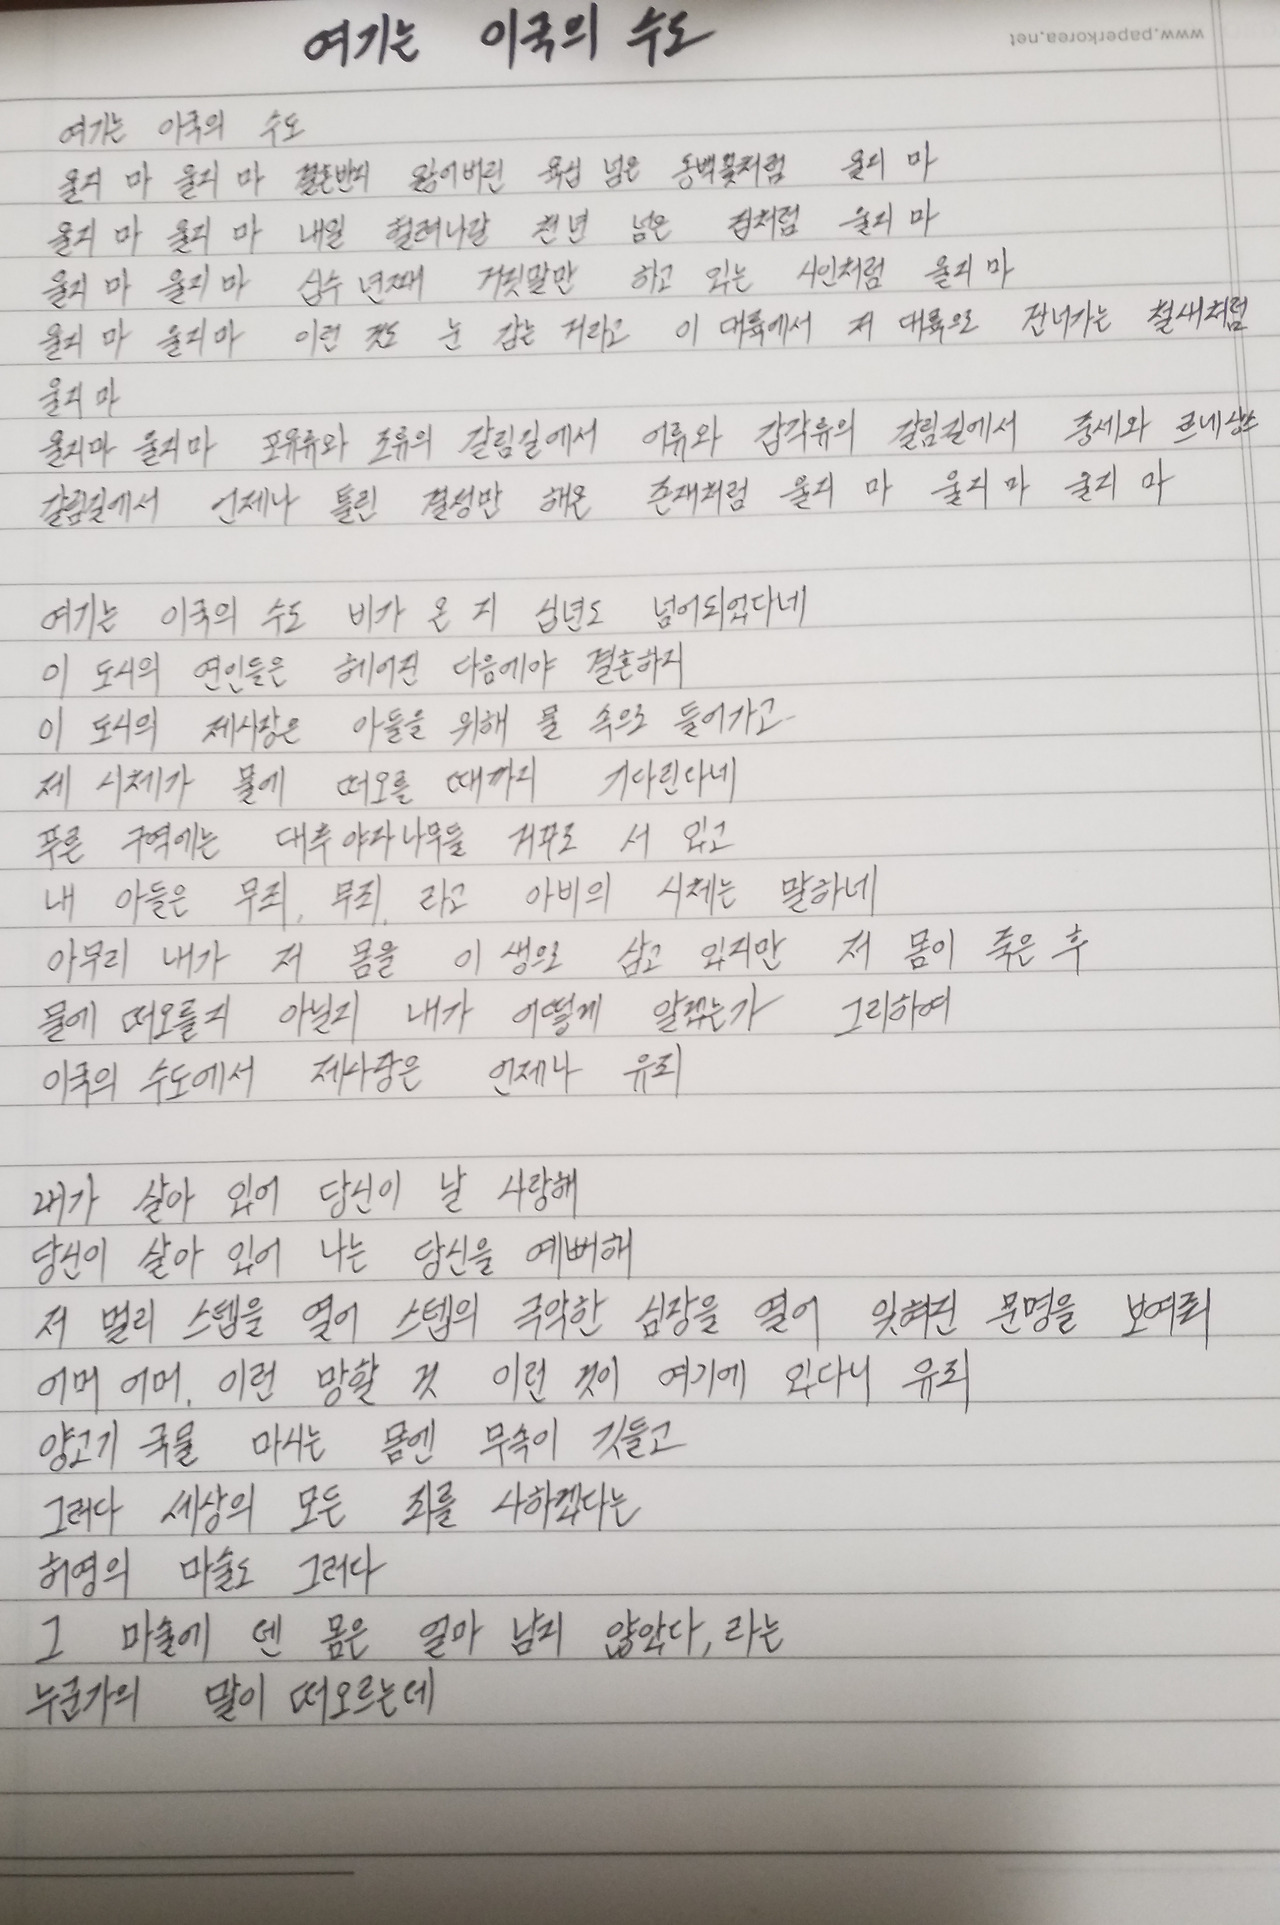 여기는 이국의 수도
www.paperkorea.net
여기는 이국의 수도
울지 마 울지 마 결혼반지 잃어버린 육십 넘은 동백꽃처럼 울지 마
울지 마 울지 마 내일 헐려나갈 천년 넘은 집처럼 울지 마
울지 마 울지 마 십수 년째 거짓말만 하고 있는 시인처럼 울지 마
울지 마 울지 마 이런 것도 눈 감는 거라고 이 대륙에서 저 대륙으로 건너가는 철새처럼
울지 마
울지마 울지마 포유류와 조류의 갈림길에서 어류와 갑각류의 갈림길에서 중세와 르네상스
갈림길에서 언제나 틀린 결정만 해온 존재처럼 울지 마 울지 마 울지 마
여기는 이국의 수도 비가 온 지 십년도 넘어되었다네
이 도시의 연인들은 헤어진 다음에야 결혼하지
이 도시의 제사장은 아들을 위해 물 속으로 들어가고
제 시체가 물에 떠오를 때까지 기다린다네
푸른 구역에는 대추야자나무들 거꾸로 서 있고
내 아들은 무죄, 무죄, 라고 아비의 시체는 말하네
아무리 내가 저 몸을 이 생으로 삼고 있지만 저 몸이 죽은 후
물에 떠오를지 아닐지 내가 어떻게 알겠는가 그리하여
이국의 수도에서 제사장은 언제나 유죄
내가 살아 있어 당신이 날 사랑해
당신이 살아 있어 나는 당신을 예뻐해
저 멀리 스텝을 열어 스텝의 극악한 심장을 열어 잊혀진 문명을 보여줘
어머 어머, 이런 망할 것 이런 것이 여기에 있다니 유죄
양고기 국물 마시는 몸엔 무속이 깃들고
그러다 세상의 모든 죄를 사하겠다는
허영의 마술도 그러다
그 마술에 덴 몸은 얼마 남지 않았다, 라는
누군가의 말이 떠오르는데